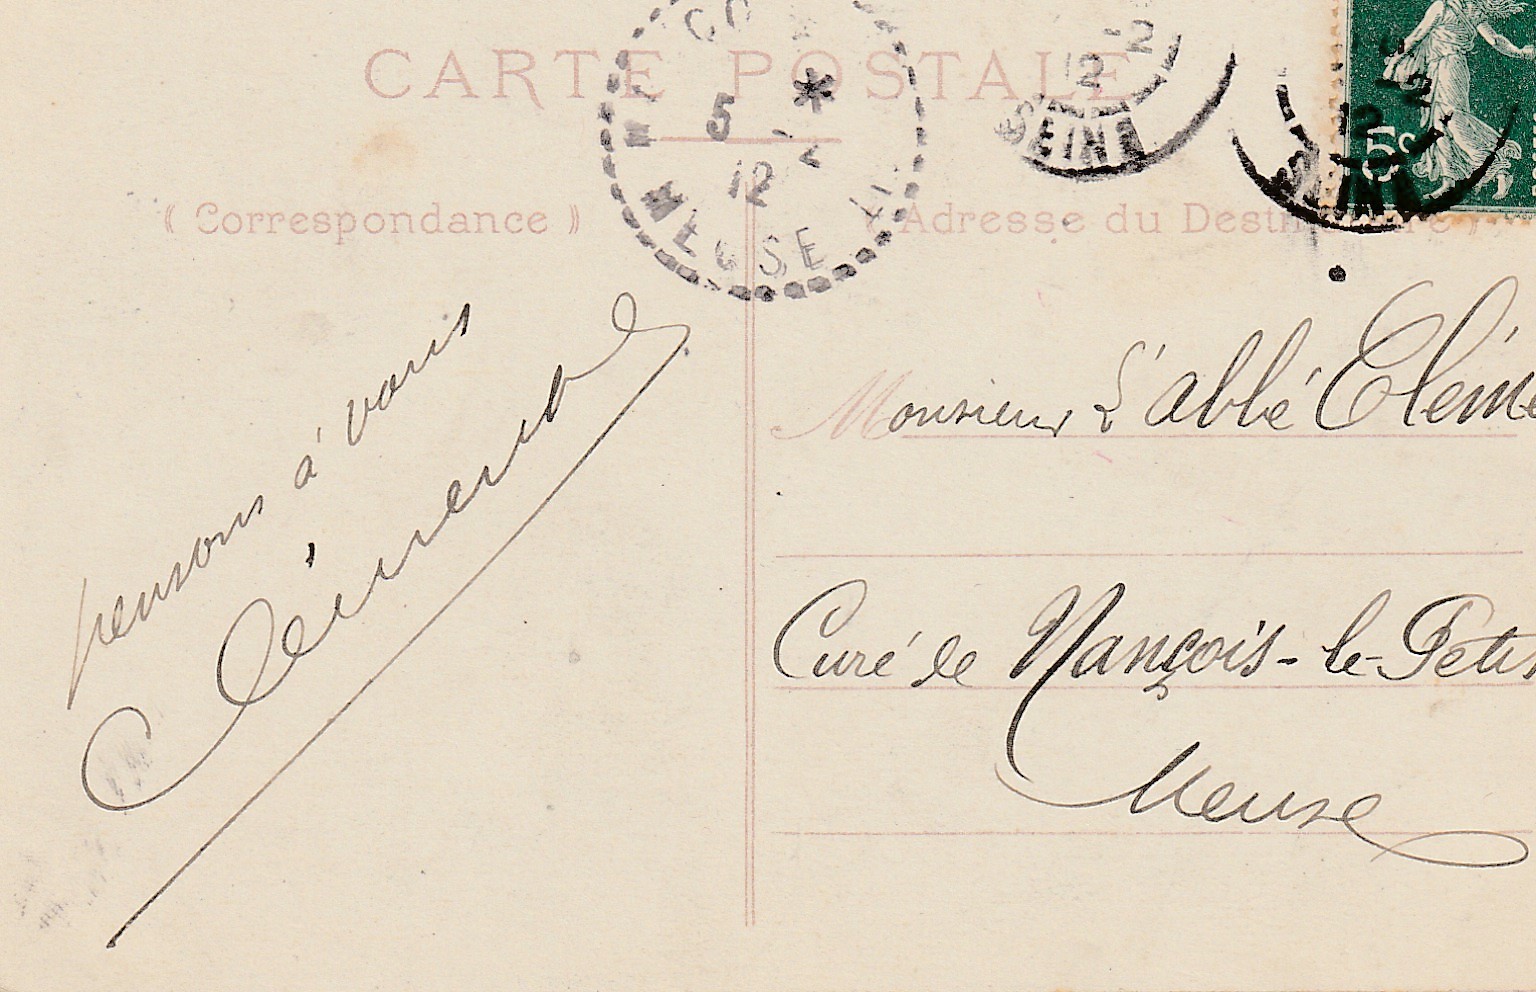 CARTE POSTALE
5 -2
12
MEUSE
-2
12
SEINE
12
5c
« Correspondance »
« Adresse du Destinataire »
pensons à vous
Clément
Monsieur L'abbé Cléme
Curé de Nançois-le-Petit
Meuse